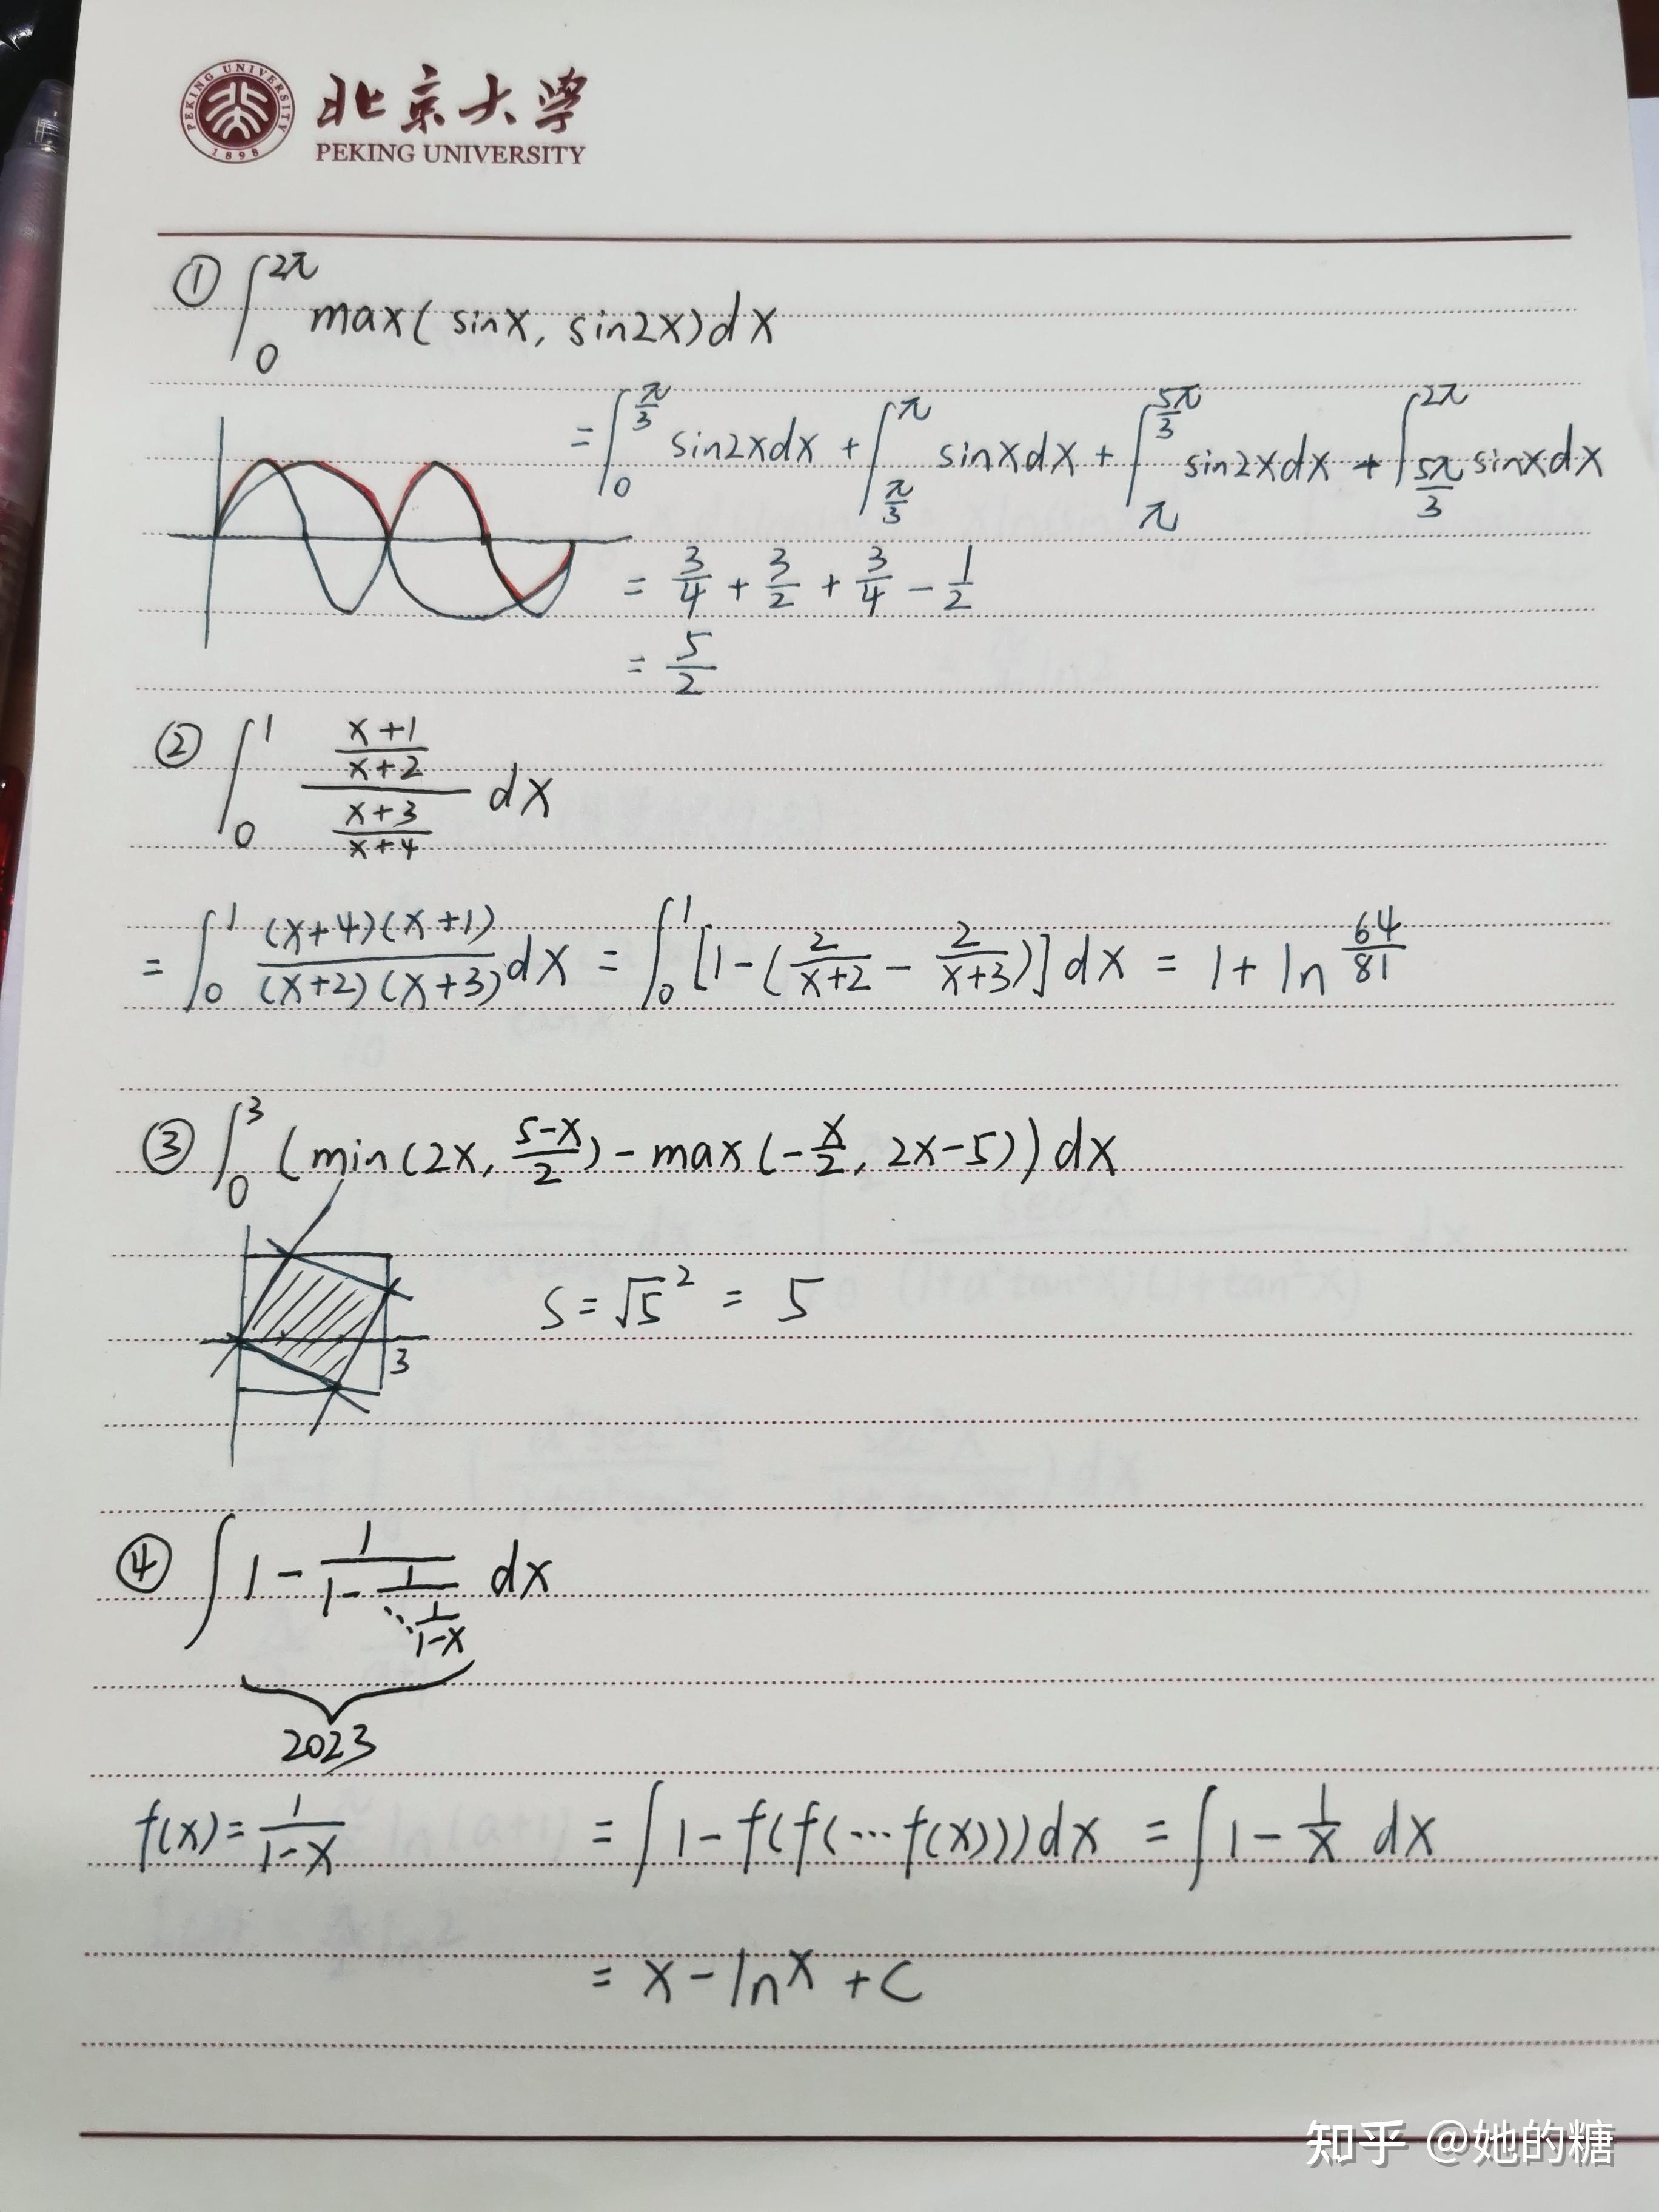 PEKING UNIVERSITY
1898
北京大学
PEKING UNIVERSITY
① ∫₀^{2π} max(sinx, sin2x)dx
= ∫₀^{π/3} sin2xdx + ∫_{π/3}^{π} sinxdx + ∫_{π}^{5π/3} sin2xdx + ∫_{5π/3}^{2π} sinxdx
= 3/4 + 3/2 + 3/4 - 1/2
= 5/2
② ∫₀¹ ((x+1)/(x+2))/((x+3)/(x+4)) dx
= ∫₀¹ (x+4)(x+1)/((x+2)(x+3)) dx = ∫₀¹ [1-(2/(x+2) - 2/(x+3))]dx = 1+ln 64/81
③ ∫₀³ (min(2x, (5-x)/2) - max(-x/2, 2x-5))dx
S = √5² = 5
3
④ ∫ 1 - 1/(1 - 1/(⋱ 1/(1-x))) dx
2023
f(x) = 1/(1-x) = ∫ 1-f(f(…f(x)))dx = ∫ 1 - 1/x dx
= x - lnx + C
知乎 @她的糖